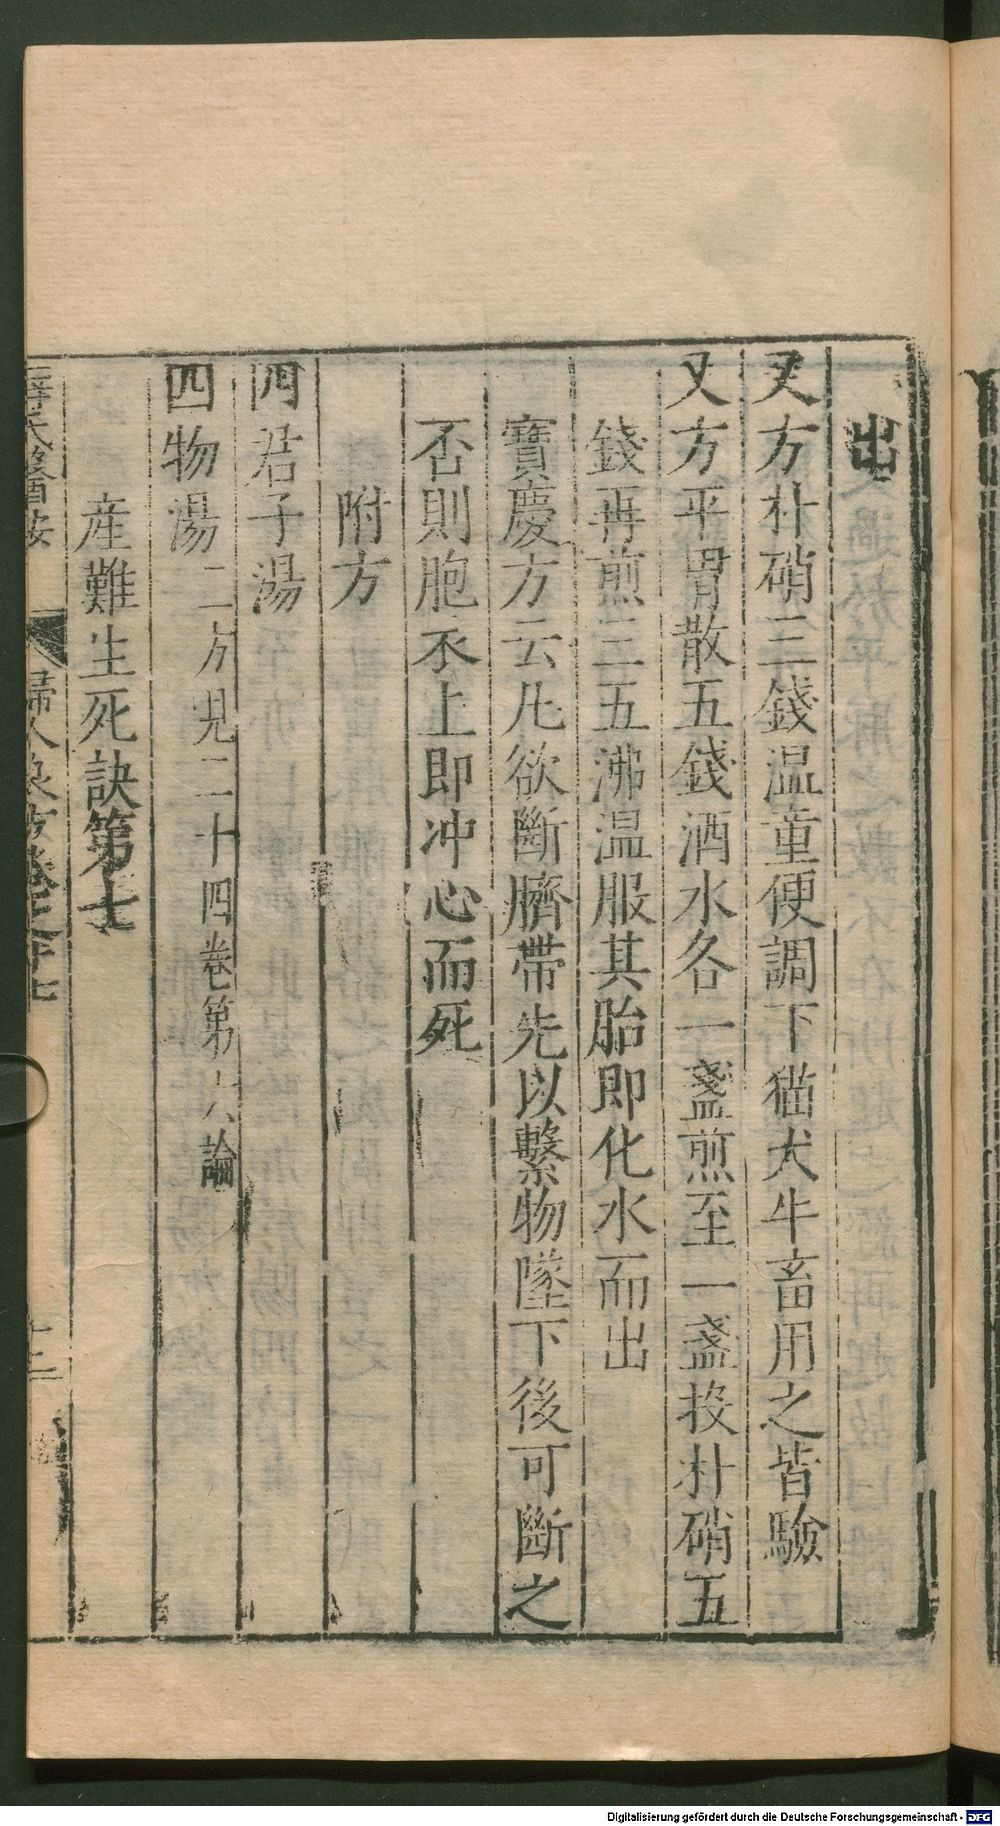 出
又方朴硝三錢温童便調下猫犬牛畜用之皆驗
又方平胃散五錢酒水各一盞煎至一盞投朴硝五
錢再煎三五沸温服其胎即化水而出
寶慶方云凡欲斷臍帶先以繫物墜下後可斷之
否則胞衣上即冲心而死
附方
四君子湯
四物湯二方見二十四卷第六論
産難生死訣第七
薛氏醫按 婦人良方卷之十七
Digitalisierung gefördert durch die Deutsche Forschungsgemeinschaft - DFG